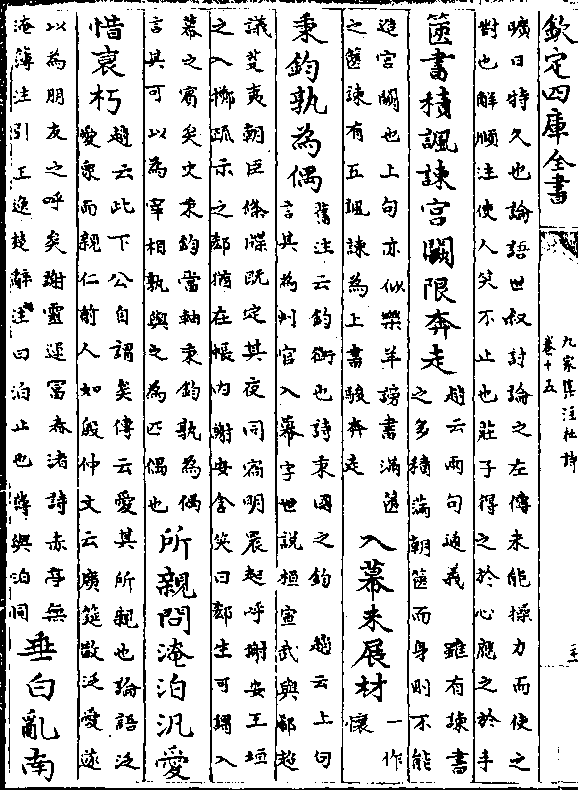 欽定四庫全書
九家集注杜詩
卷十五
曠日持久也論語世叔討論之左傳未能操刀而使之
對也解頤注使人笑不止也莊子得之於心應之於手
篋書積諷諫宫闕限奔走
趙云兩句通義雖有諫書
之多積滿朝篋而身則不能
造宫闕也上句亦似樂羊謗書滿篋
之篋諫有五諷諫為上書駿奔走
入幕未展材
一作
懷
秉鈞孰為偶
舊注云鈞衡也詩秉國之鈞趙云上句
言其為判官入幕字世說桓宣武與郗超
議芟夷朝臣條牒既定其夜同宿明晨起呼謝安王坦
之入擲疏示之郗猶在帳内謝安含笑曰郗生可謂入
幕之賓矣文秉鈞當軸秉鈞孰為偶
言其可以為宰相孰與之為匹偶也
所親問淹泊汎愛
惜衰朽
趙云此下公自謂矣傳云愛其所親也論語泛
愛衆而親仁前人如殷仲文云廣筵散泛愛遂
以為朋友之呼矣謝靈運富春渚詩赤亭無
淹薄注引王逸楚辭注曰泊止也薄與泊同
垂白亂南